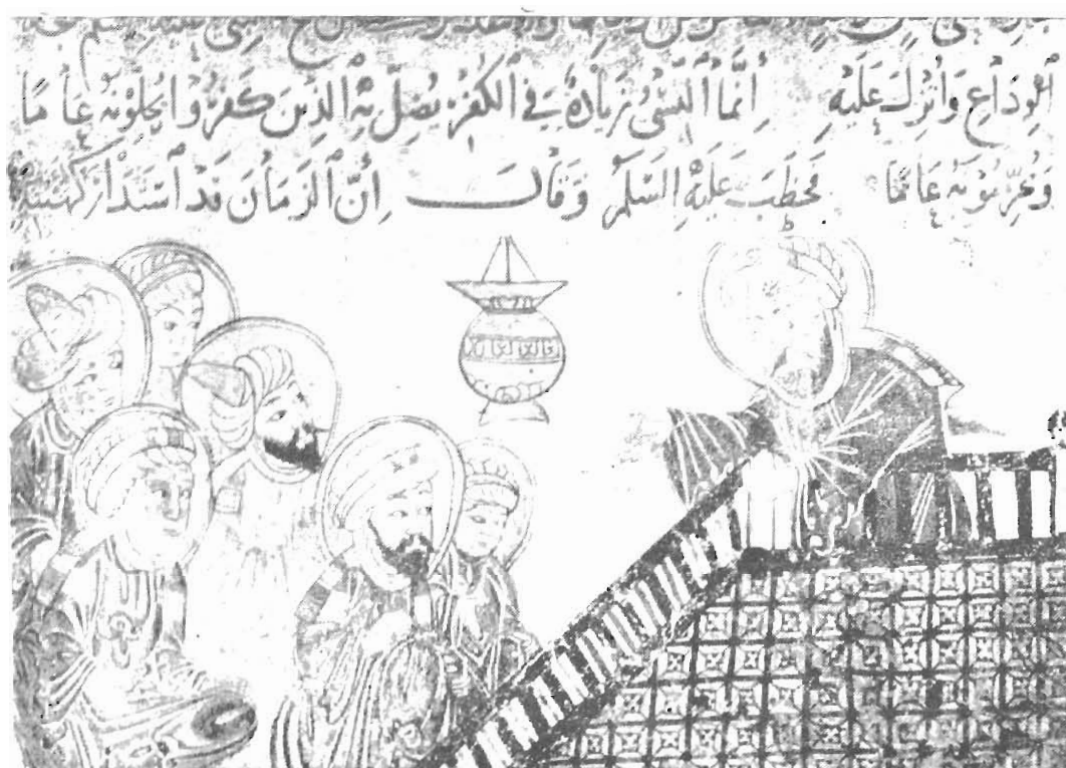 الوداع وأنزل عليه إنما النسي زيادة في الكفر يضل به الذين كفروا يحلونه عاما
ويحرمونه عاما فخطب عليه السلم وقال إن الزمان قد استدار كهيئته